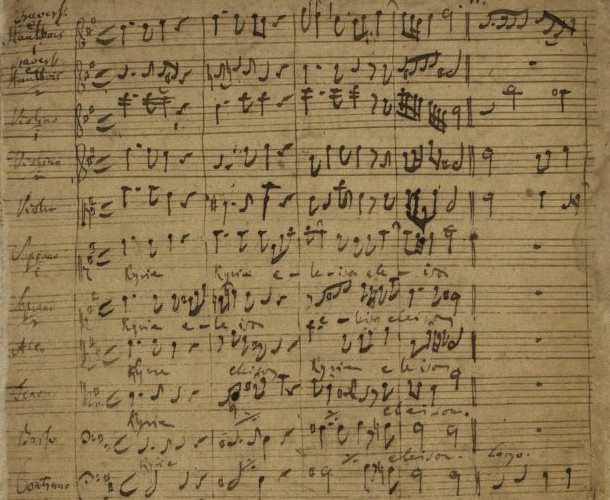 Travers
Hautbois
1
Travers
Hautbois
2
Violino
1
Violino
Viola
Soprano
1
Kyrie Kyrie e-le-ison ele-ison
Soprano
2
Kyrie e-le-ison eleison
Alto
Kyrie eleison Kyrie eleison
Tenor
Kyrie eleison.
Basso
Kyrie eleison. Largo.
Continuo